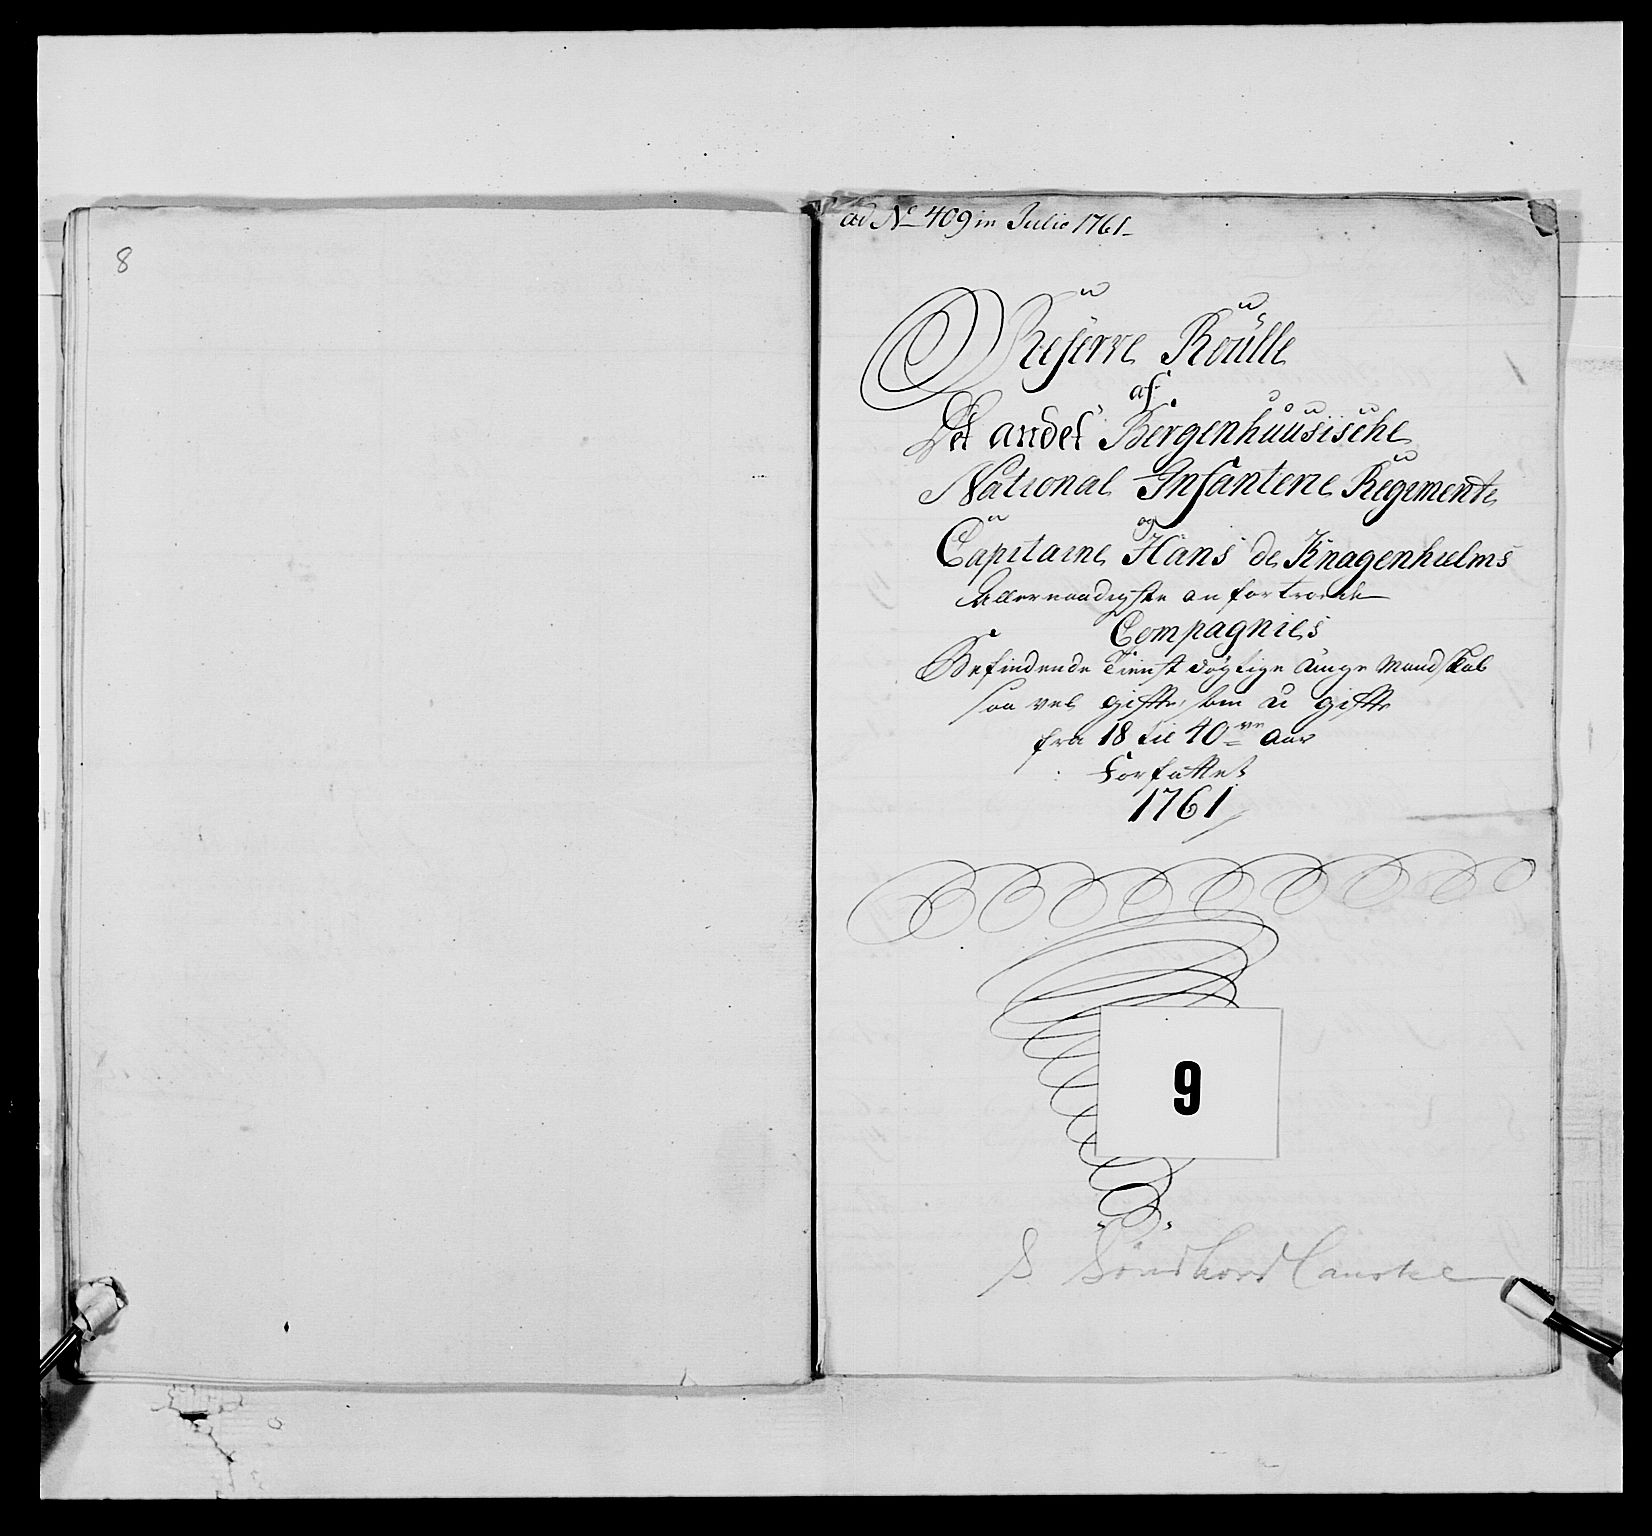 8
ad No 409 in Julio 1761
Reserve Roülle
af
Det andet Bergenhuusische
National Infanterie Regiments
og
Capitaine Hans de Knagenhielms
Allernaadigste anfortroede
Compagnies
Befindende Tienst dögtige unge Mandskab
saa vel gifte, som u gifte
fra 18 til 40ve Aar
Forfattet
1761
9
S. Söndhord